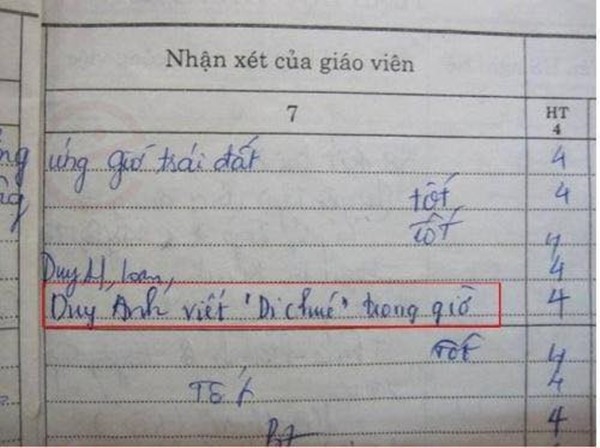 Nhận xét của giáo viên
7
HT
4
ứng Giờ trái đất 4
tốt 4
tốt 4
Duy H, loan, 4
Duy Anh viết "Di chúc" trong giờ 4
Tốt 4
Tốt 4
4